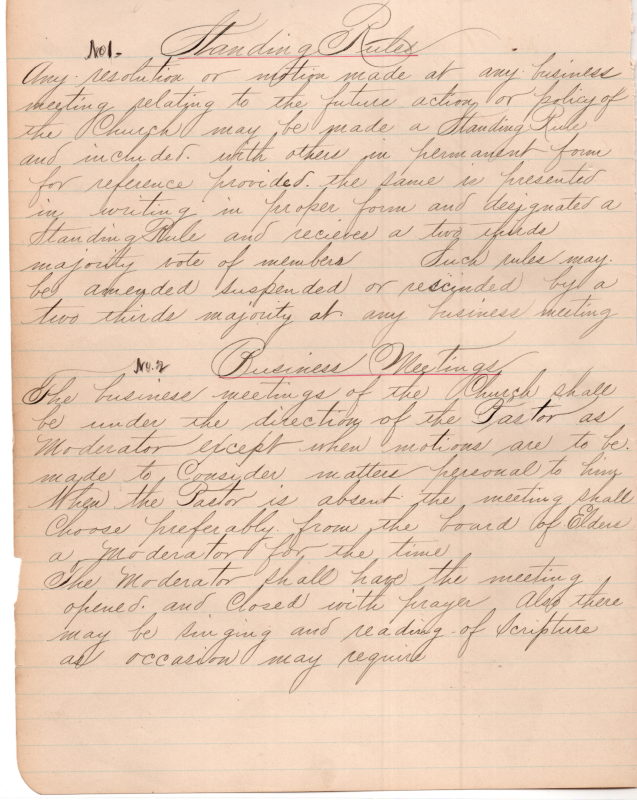 No 1. Standing Rules
Any resolution or motion made at any business
meeting relating to the future action or policy of
the Church may be made a Standing Rule
and included with others in permanent form
for reference provided the same is presented
in writing in proper form and designated a
Standing Rule and recieves a two thirds
majority vote of members Such rules may
be amended suspended or rescinded by a
two thirds majority at any business meeting
No. 2 Business Meetings
The business meetings of the Church shall
be under the direction of the Pastor as
Moderator except when motions are to be
made to Consider matters personal to him
When the Pastor is absent the meeting shall
Choose preferably from the board of Elders
a Moderator for the time
The Moderator shall have the meeting
opened and Closed with prayer Also there
may be singing and reading of Scripture
as occasion may require